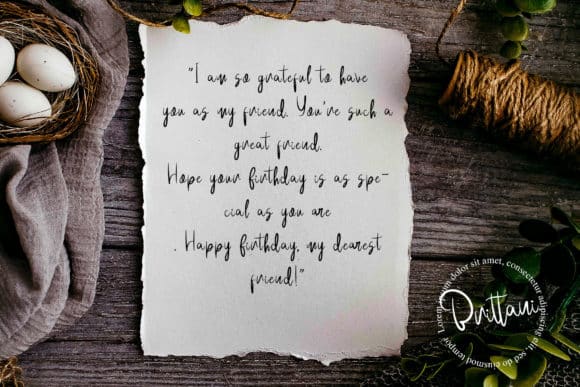 "I am so grateful to have
you as my friend. You're such a
great friend.
Hope your birthday is as spe-
cial as you are
. Happy birthday, my dearest
friend!"
Brittani
Lorem ipsum dolor sit amet, consectetur adipiscing elit, sed do eiusmod tempor